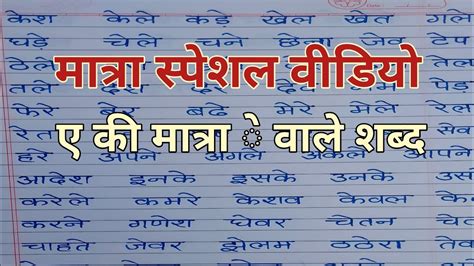 केश केले कड़े खेल खेत गले
घड़े चेले चने छेना जेव टेप
ठेले
मात्रा स्पेशल वीडियो
तले पेड़
फेरे बढ़े मेरे मेले
ए की मात्रा े वाले शब्द
हरे अपने अगले अकेले आपने
आदेश इनके इसके उनके उस
करेले कमरे केशव केवल के
करने गणेश घेवर चेतन चे
चाहते जेवर झेलम ठठेरा ते